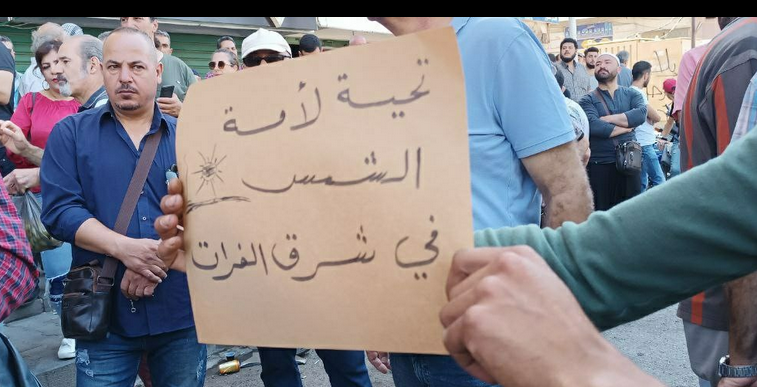 تحية لأمة
الشمس
في شرق الفرات